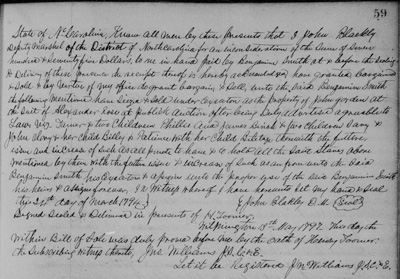 59
State of No Carolina, Know all men by these presents that I John Blackly
Deputy Marshal of the District of North Carolina for an in consideration of the Sum of Seven
hundred & Seventy five Dollars, to me in hand paid by Benjamin Smith at & before the Sealing
& Delivery of these presents the receipt thereof is hereby acknowledged have granted bargained
& Sold & by virtue of my office do grant bargain & Sell, unto the said Benjamin Smith
the following mentioned have Seized & sold under Execution as the property of John
at the Suit of Alexander Ross at publick Auction after being duly advertised agreeable to
Law, Viz. & two Children Aria James Dinah & two Children Mary &
John Lucy & two Child Billy & Patience with her Child Betsey together with the future
issue and increase of such as are females to have & to hold all the Said Slaves above
mentioned by them with the future issue & increase of Such as are from unto the Said
Benjamin Smith his Executors & assigns unto the proper use of the said Benjamin Smith
his heirs & assigns forever. In Witness whereof I have hereunto set my hand & Seal
this 21st day of March 1794. John Blakley D.M. (Seal)
Signed Sealed & Delivered in presents of H. Turner.
Wilmington 5th May 1797. This day the
Within Bill of Sale was duly proved before me by the oath of Henry Turner
the Subscribing Witness thereto, Jno Williams
Let it be Registered Jno Williams